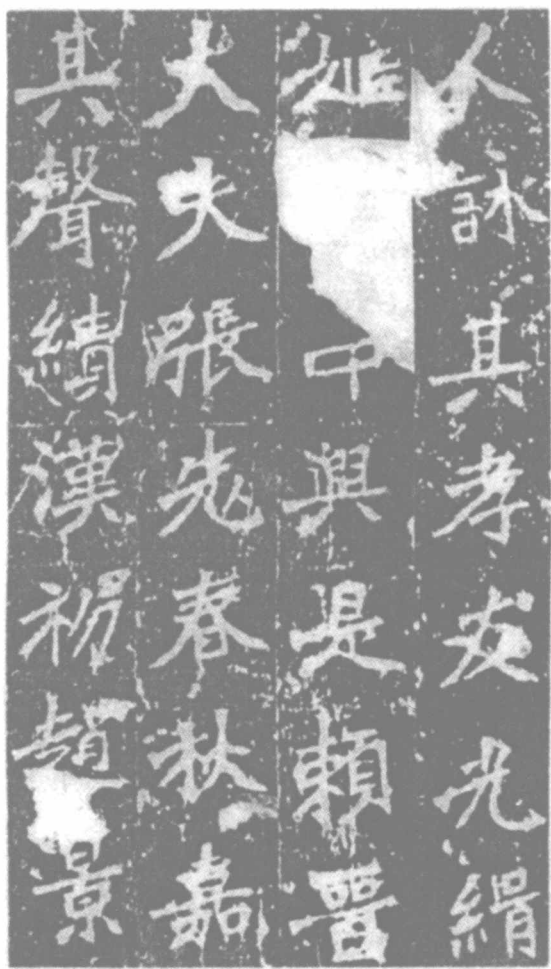 人詠其孝友光緝
中興是賴晉
大夫張老春秋嘉
其聲績漢初趙景